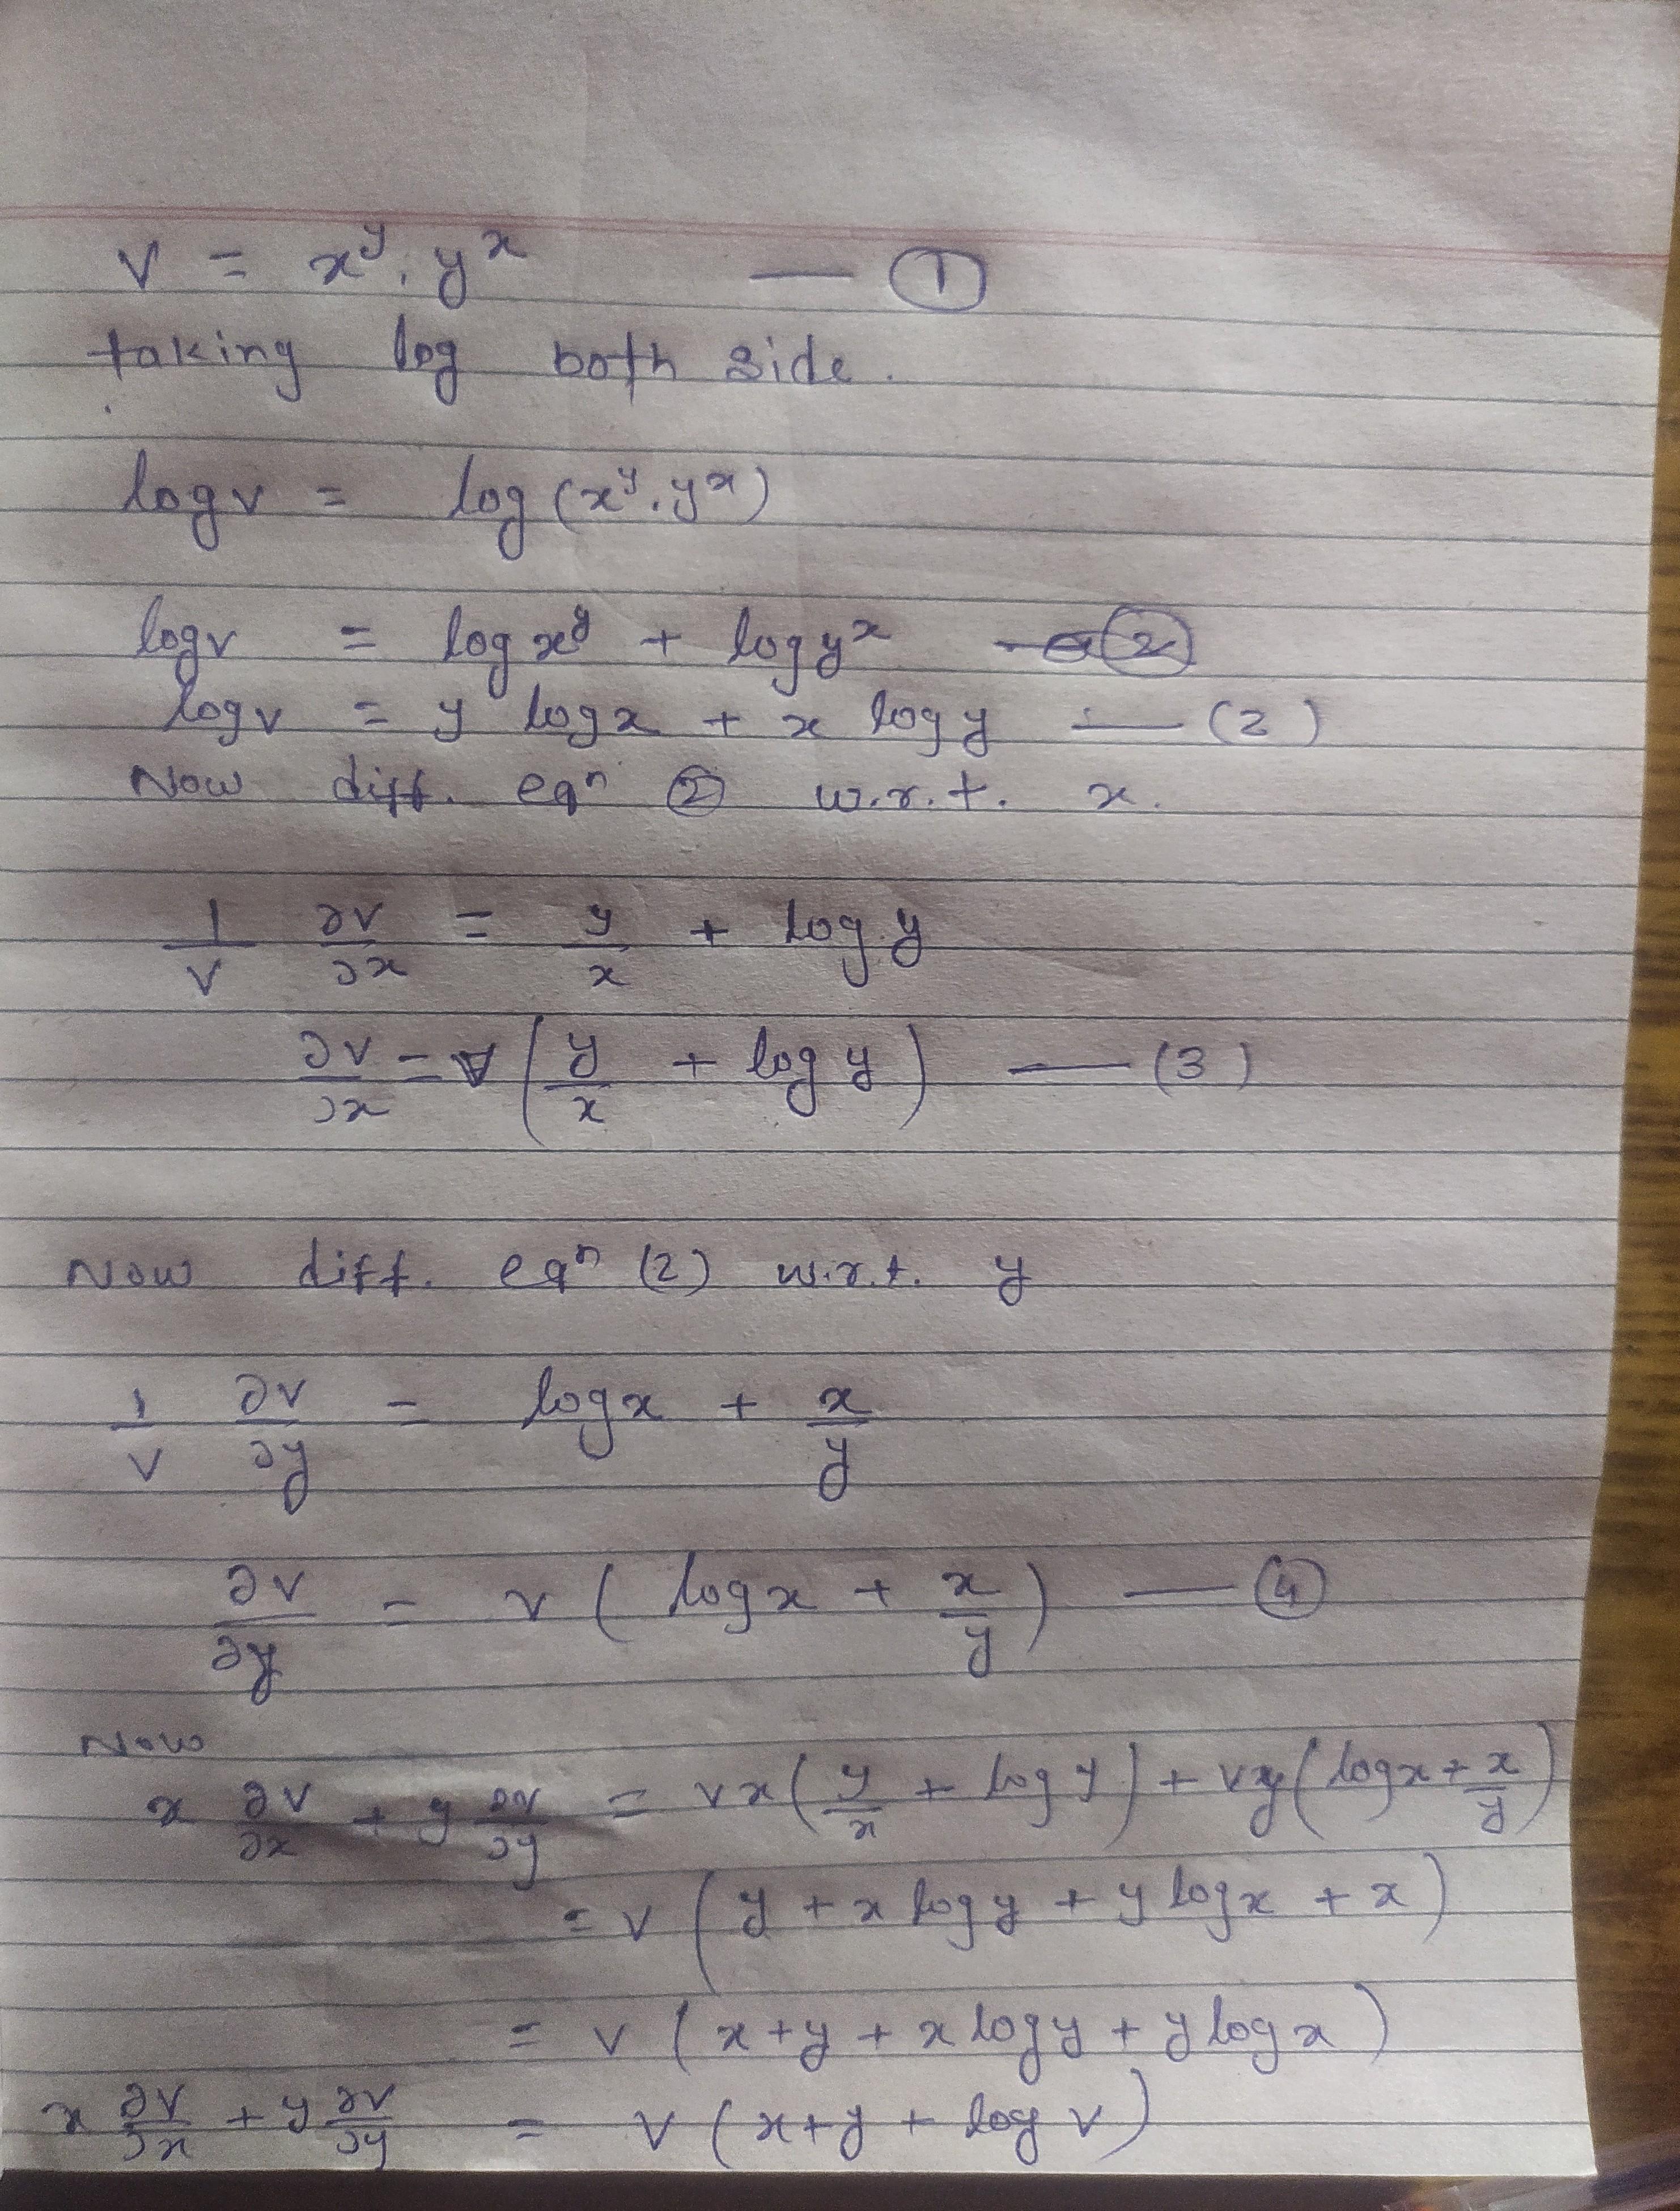 v = x^y . y^x — ①
taking log both side.
log v = log (x^y . y^x)
log v = log x^y + log y^x — ②
log v = y log x + x log y — (2)
Now diff. eqⁿ ② w.r.t. x.
1/v ∂v/∂x = y/x + log y
∂v/∂x = v (y/x + log y) — (3)
Now diff. eqⁿ (2) w.r.t. y
1/v ∂v/∂y = log x + x/y
∂v/∂y = v ( log x + x/y ) — ④
Now
x ∂v/∂x + y ∂v/∂y = vx ( y/x + log y ) + vy ( log x + x/y )
= v ( y + x log y + y log x + x )
= v ( x+y + x log y + y log x )
x ∂v/∂x + y ∂v/∂y = v ( x+y + log v )